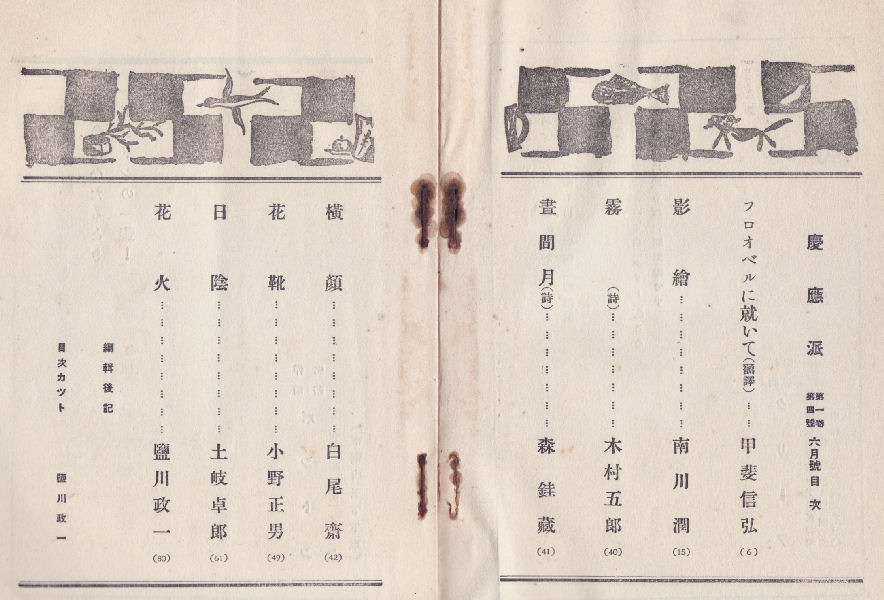 慶應派 第一卷第四號 六月號目次
フロオベルに就いて(飜譯)………甲斐信弘(6)
影繪………南川潤(15)
霧(詩)………木村五郎(40)
晝間月(詩)………森銈藏(41)
橫顏………白尾齋(42)
花靴………小野正男(49)
日陰………土岐卓郎(61)
花火………鹽川政一(80)
編輯後記
目次カツト 鹽川政一